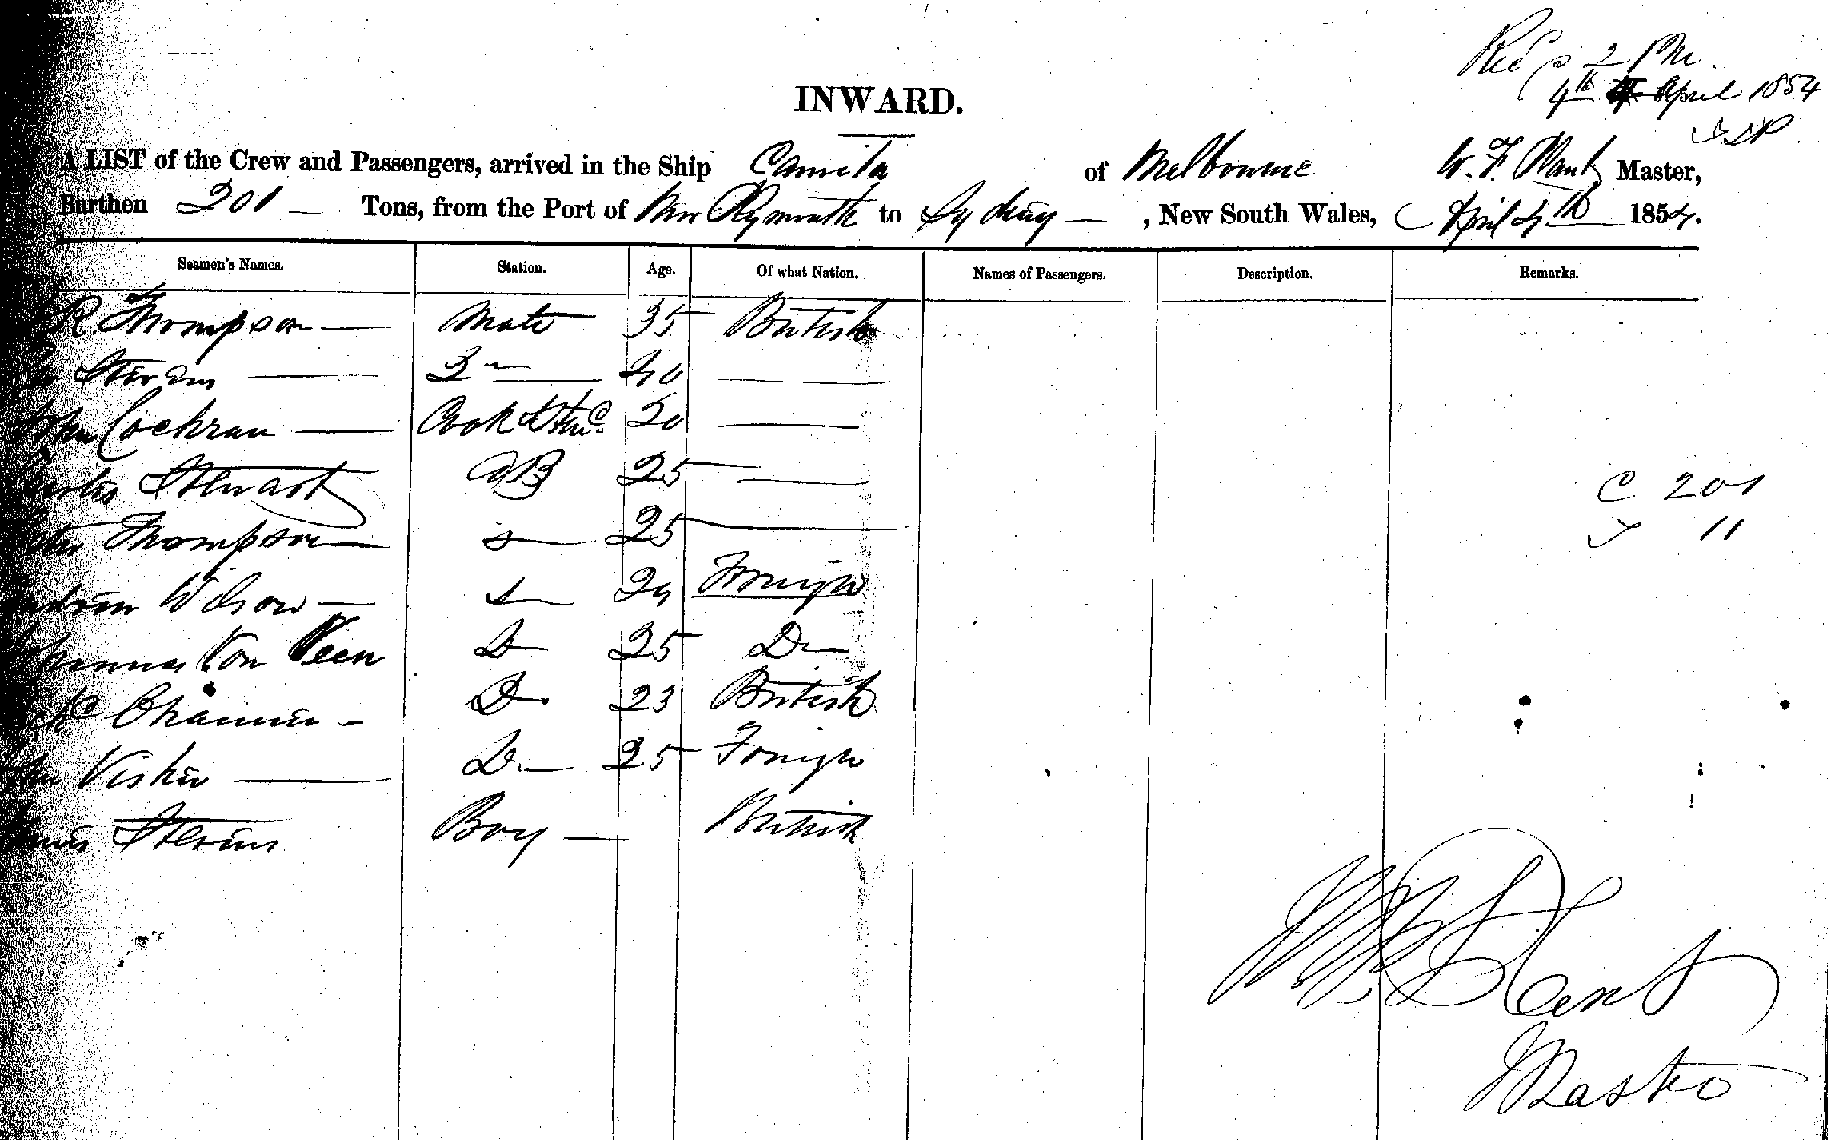 Recd 2 PM.
4th April 1854
INWARD.
A LIST of the Crew and Passengers, arrived in the Ship Camilla of Melbourne W. F. Plant Master,
Burthen 201 — Tons, from the Port of New Plymouth to Sydney — , New South Wales, April 4th 1854.
Seamen's Names. Station. Age. Of what Nation. Names of Passengers. Description. Remarks.
R Thompson — Mate 35 British
Steven — 2 — 40 — —
John Cochran — Cook & Stwd 20 —
Charles Stewart AB 25 — —
Thompson — 25 —
Wilson — 29 Foreign
Von Veen D— 25 D—
Mc D— 23 British
Visher — D— 25 Foreign
Stevens Boy — British
C 201
11
Master